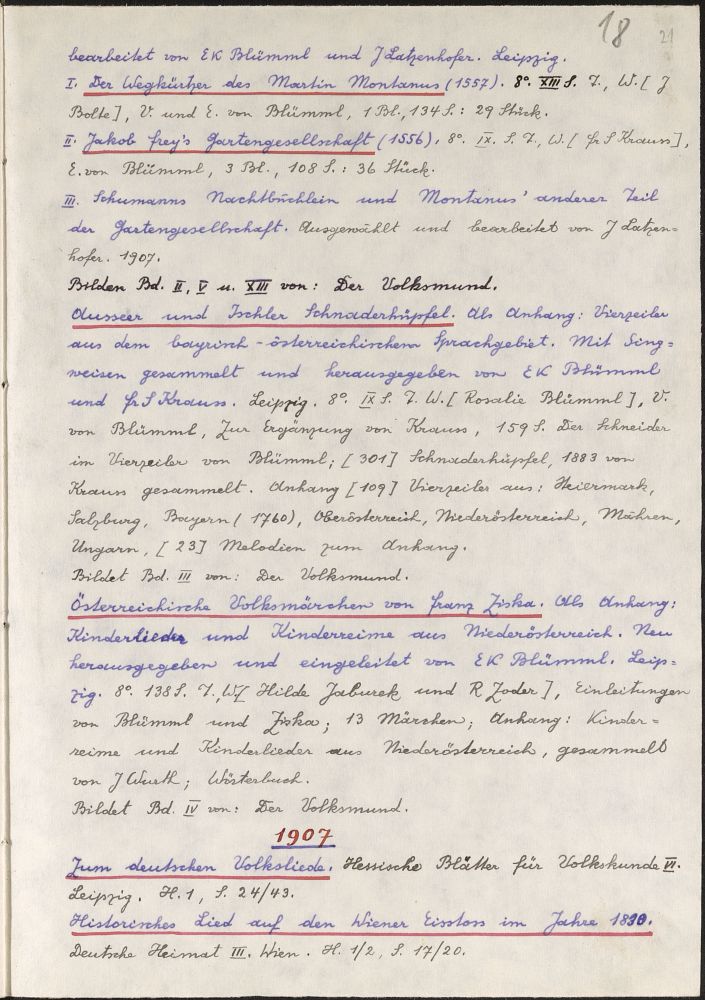 18 21
bearbeitet von EK Blümml und J Latzenhofer. Leipzig.
I. Der Wegkürtzer des Martin Montanus (1557). 8°. XIII S. T., W. [ J
Bolte], V. und E. von Blümml, 1 Bl., 134 S.: 29 Stück.
II. Jakob Frey's Gartengesellschaft (1556), 8°. IX. S. T., W. [ Fr S Krauss],
E. von Blümml, 3 Bl., 108 S.: 36 Stück.
III. Schumanns Nachtbüchlein und Montanus' anderer Teil
der Gartengesellschaft. Ausgewählt und bearbeitet von J Latzen=
hofer. 1907.
Bilden Bd. II, V u. XIII von: Der Volksmund.
Ausseer und Ischler Schnaderhüpfel. Als Anhang: Vierzeiler
aus dem bayrisch-österreichischem Sprachgebiet. Mit Sing=
weisen gesammelt und herausgegeben von EK Blümml
und Fr S Krauss. Leipzig. 8°. IX S. T. W. [ Rosalie Blümml ], V.
von Blümml, Zur Ergänzung von Krauss, 159 S. Der Schneider
im Vierzeiler von Blümml; [ 301] Schnaderhüpfel, 1883 von
Krauss gesammelt. Anhang [109] Vierzeiler aus: Steiermark,
Salzburg, Bayern ( 1760), Oberösterreich, Niederösterreich, Mähren,
Ungarn, [ 23] Melodien zum Anhang.
Bildet Bd. III von: Der Volksmund.
Österreichische Volksmärchen von Franz Ziska. Als Anhang:
Kinderlieder und Kinderreime aus Niederösterreich. Neu
herausgegeben und eingeleitet von EK Blümml. Leip=
zig. 8°. 138 S. T., W[ Hilde Jaburek und R Zoder], Einleitungen
von Blümml und Ziska; 13 Märchen; Anhang: Kinder=
reime und Kinderlieder aus Niederösterreich, gesammelt
von J Wurth; Wörterbuch.
Bildet Bd. IV von: Der Volksmund.
1907
Zum deutschen Volksliede. Hessische Blätter für Volkskunde VI.
Leipzig. H. 1, S. 24/43.
Historisches Lied auf den Wiener Eisstoss im Jahre 1830.
Deutsche Heimat III. Wien. H. 1/2, S. 17/20.